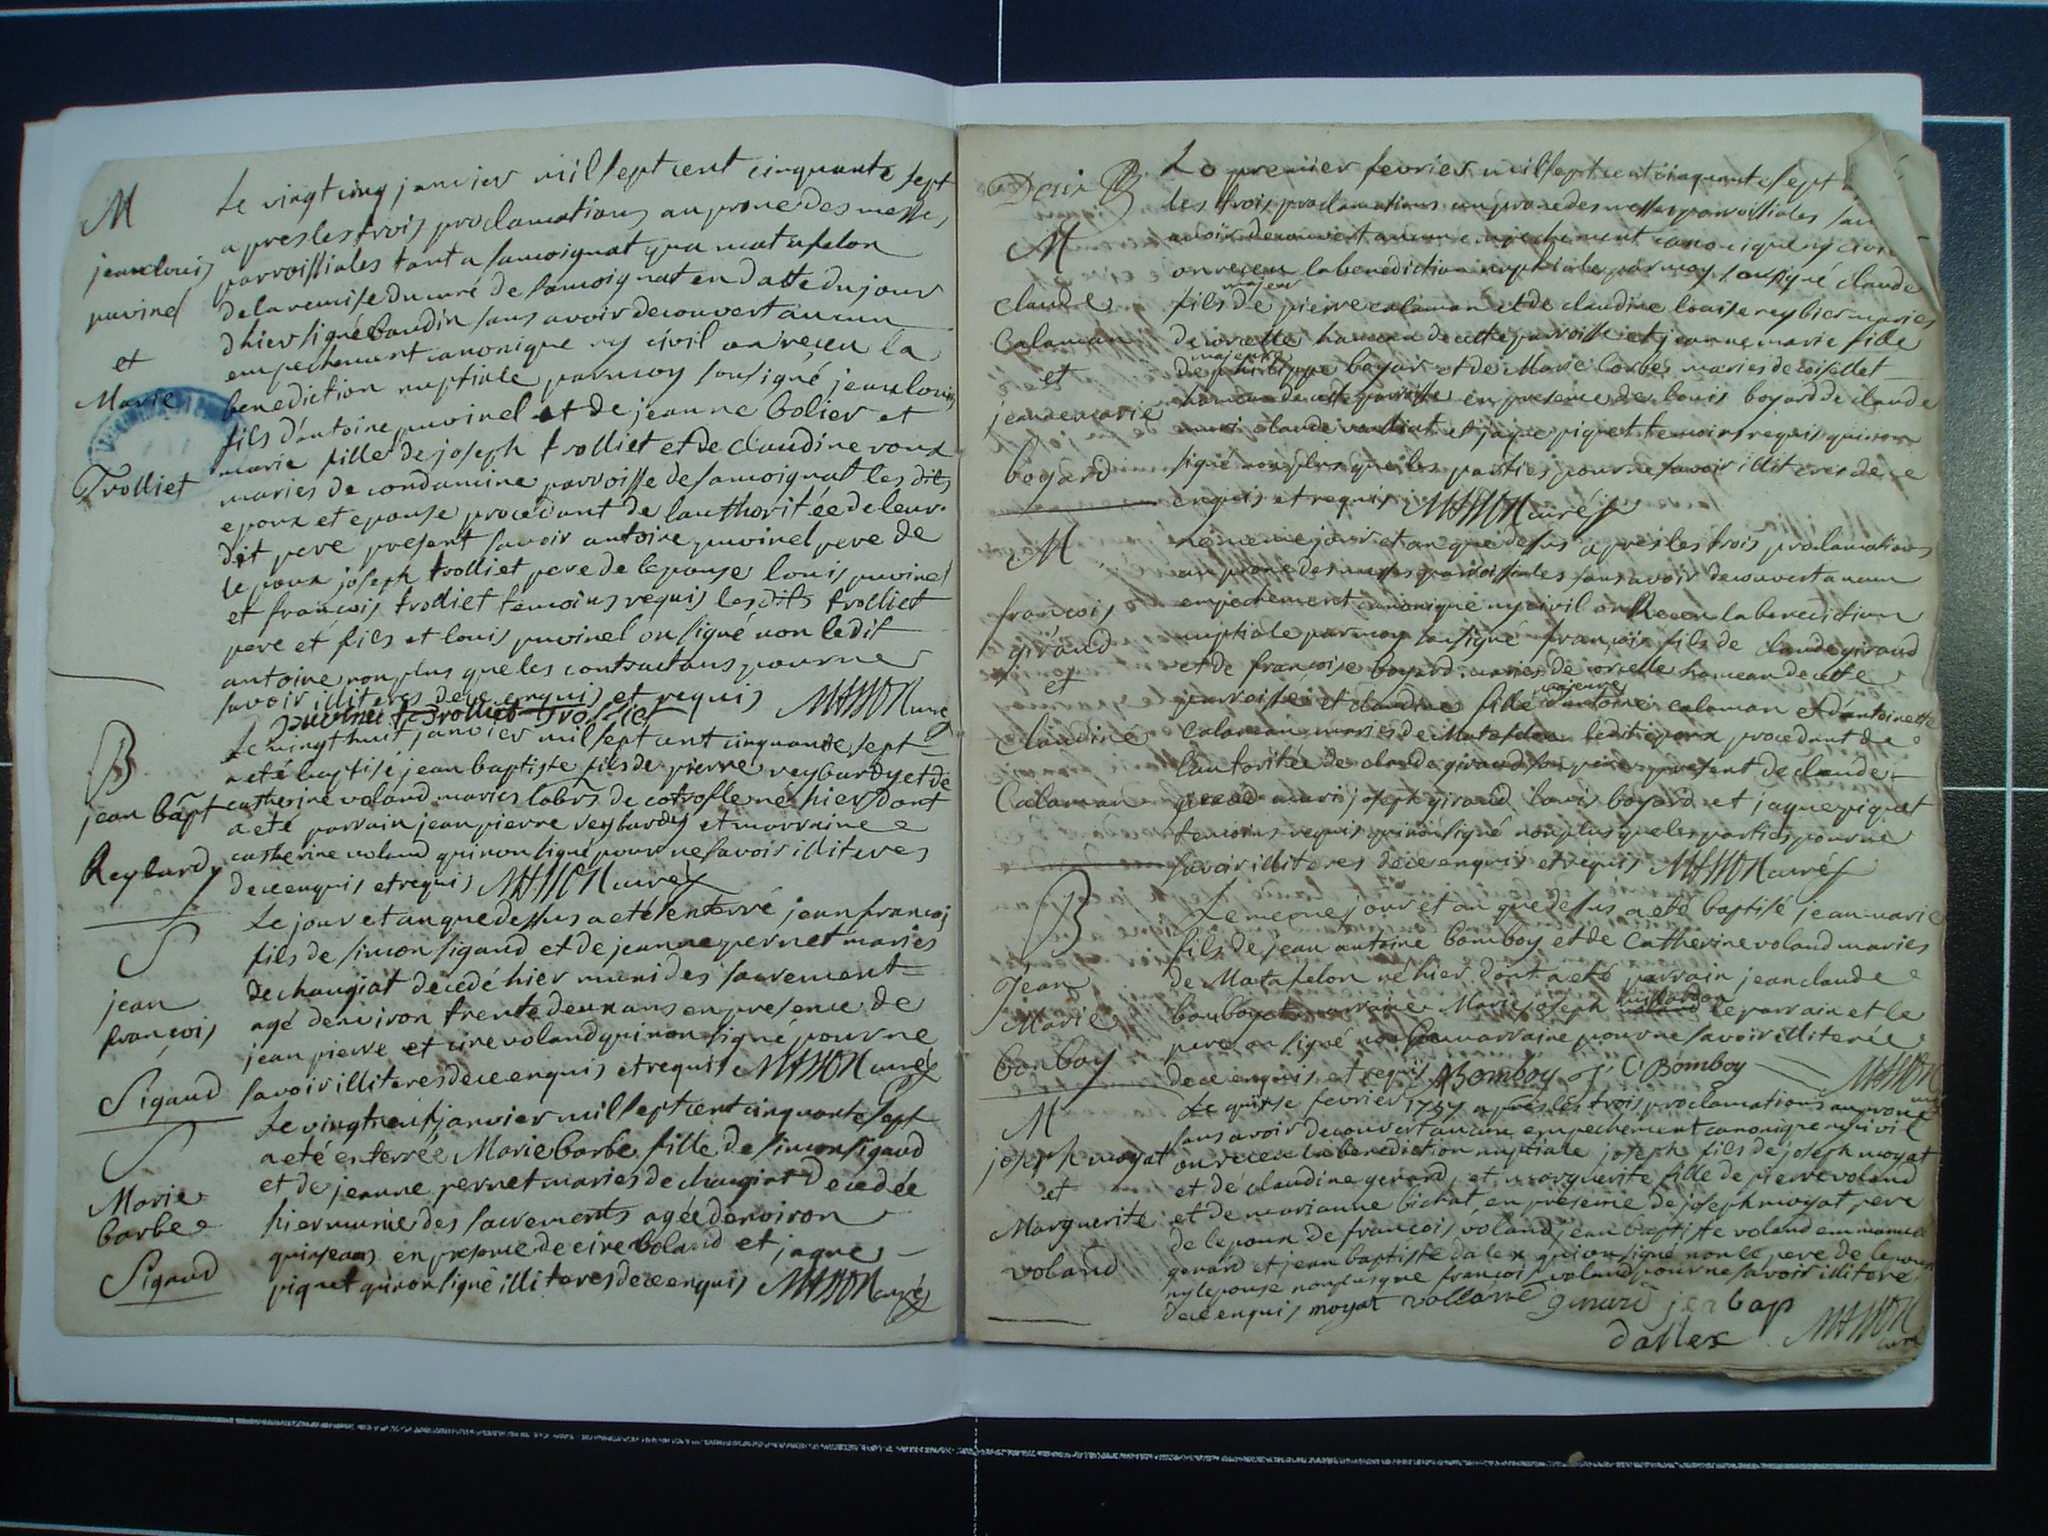 M
jean louis
puvinel
et
Marie
Trolliet
Le vingt cinq janvier mil sept cent cinquante sept
apres les trois proclamations au prone des messes
parroissiales tant a samoignat qua matafelon
de la remise du curé de Samoignat en datte du jour
dhier signé baudin sans avoir decouvert aucun
empechement canonique ny civil on reçeu la
benediction nuptiale par moy sousigné jean louis
fils d'antoine puvinel et de jeanne bolier et
marie fille de joseph trolliet et de claudine roux
maries de condamine parroisse de samoignat les dits
epoux et epouse procedant de lauthoritée de leur
dit pere present savoir antoine puvinel pere de
lepoux joseph trolliet pere de lepouse louis puvinel
et françois trolliet temoins requis les dits trolliet
pere et fils et louis puvinel on signé non ledit
antoine non plus que les contractans pour ne
savoir illiteres de ce enquis et requis MASSON curé
puvinel trolliet Trolliet
B
jean bapt
Reybardy
Le vingt huit janvier mil sept cent cinquante sept
a eté baptisé jean baptiste fils de pierre reybardy et de
catherine voland maries labrs de cotrofle né hier dont
a eté parrain jean pierre reybardy et marraine
catherine voland qui non signé pour ne savoir illiteres
de ce enquis et requis MASSON curé
S
jean
françois
Sigaud
Le jour et an que dessus a eté enterré jean françois
fils de simon sigaud et de jeanne pernet maries
de changiat decedé hier muni des sacrement
agé denviron trente deux ans en presence de
jean pierre et cire voland qui non signé pour ne
savoir illiteres de ce enquis et requis MASSON curé
S
Marie
barbe
Sigaud
Le vingt neuf janvier mil sept cent cinquante sept
a eté enterrée Marie barbe fille de simon sigaud
et de jeanne pernet maries de changiat decedée
hier munie des sacrements agée denviron
quinse ans en presence de cire voland et jaque
piquet qui non signé illiteres de ce enquis MASSON curé
M
claude
Calaman
et
jeanne marie
boyard
Le premier fevrier mil sept cent cinquante sept
les trois proclamations au prone des messes parroissiales
avoir decouvert aucun empechement canonique ny civil
on reçeu la benediction nuptiale par moy sousigné claude
majeur
fils de pierre calaman et de claudine louise reybier maries
de corcelle hameau de cette parroisse et jeanne marie fille
majeure
de philippe boyard et de Marie barbe maries de coiselet
hameau de cette parroisse en presence de louis boyard de claude
claude et jaque piquet temoins requis qui non
signé non plus que les parties pour ne savoir illiteres de ce
enquis et requis MASSON curé
M
françois
giraud
et
claudine
Calaman
Le meme jour et an que dessus apres les trois proclamations
au prone des messes parroissiales sans avoir decouvert aucun
empechement canonique ny civil on Reçeu la benediction
nuptiale par moy sousigné françois fils de claude giraud
et de françoise boyard maries de corcelle hameau de cette
parroisse et claudine fille majeure d'antoine calaman et d'antoinette
Calaman maries de Matafelon ledit epoux procedant de
lautoritée de claude giraud son pere present de claude
giraud joseph giraud louis boyard et jaque piquet
temoins requis qui non signé non plus que les parties pour ne
savoir illiteres de ce enquis et requis MASSON curé
B
Jean
Marie
bonboy
Le meme jour et an que dessus a eté baptisé jean marie
fils de jean antoine bomboy et de Catherine voland maries
de Matafelon né hier dont a eté parrain jean claude
bonboy et marraine Marie joseph le parrain et le
pere on signé non la marraine pour ne savoir illiterée
de ce enquis et requis ABomboy J C Bomboy MASSON curé
M
joseph moyat
et
Marguerite
voland
Le quinse fevrier 1757 apres les trois proclamations au prone
sans avoir decouvert aucun empechement canonique ny civil
on reçeu la benediction nuptiale joseph fils de joseph moyat
et de claudine gerard, et marguerite fille de pierre voland
et de marianne bichat, en presence de joseph moyat pere
de lepoux de françois voland jean baptiste voland emmanuel
gerard et jean baptiste dalex qui on signé non le pere de lepoux
ny lepouse non plus que françois voland pour ne savoir illitere
de ce enquis moyat volland girard jen bap
dallex MASSON curé